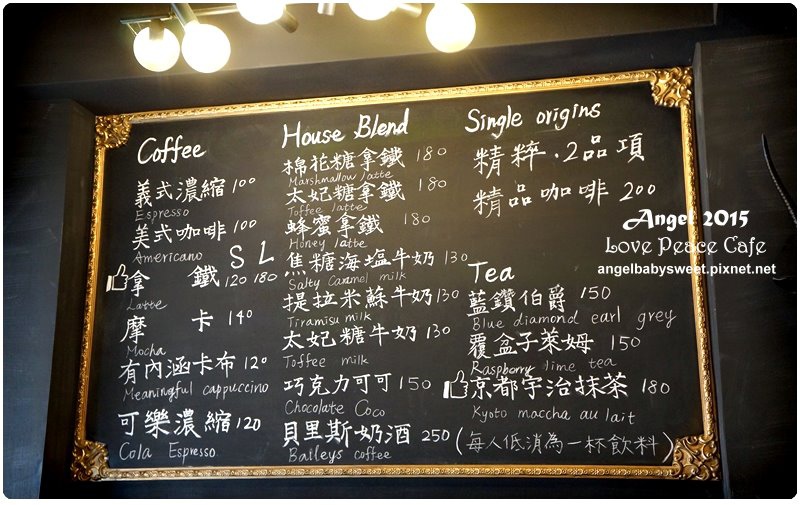 Coffee
義式濃縮 100
Espresso
美式咖啡 100
Americano
S L
拿鐵 120 180
Latte
摩卡 140
Mocha
有內涵卡布 120
Meaningful cappuccino
可樂濃縮 120
Cola Espresso
House Blend
棉花糖拿鐵 180
Marshmallow latte
太妃糖拿鐵 180
Toffee latte
蜂蜜拿鐵 180
Honey latte
焦糖海塩牛奶 130
Salty Caramel milk
提拉米蘇牛奶 130
Tiramisu milk
太妃糖牛奶 130
Toffee milk
巧克力可可 150
Chocolate Coco
貝里斯奶酒 250
Baileys coffee
Single origins
精粹.2品項
精品咖啡 200
Tea
藍鑽伯爵 150
Blue diamond earl grey
覆盆子萊姆 150
Raspberry lime tea
京都宇治抹茶 180
Kyoto maccha au lait
(每人低消為一杯飲料)
Angel 2015
Love Peace Cafe
angelbabysweet.pixnet.net